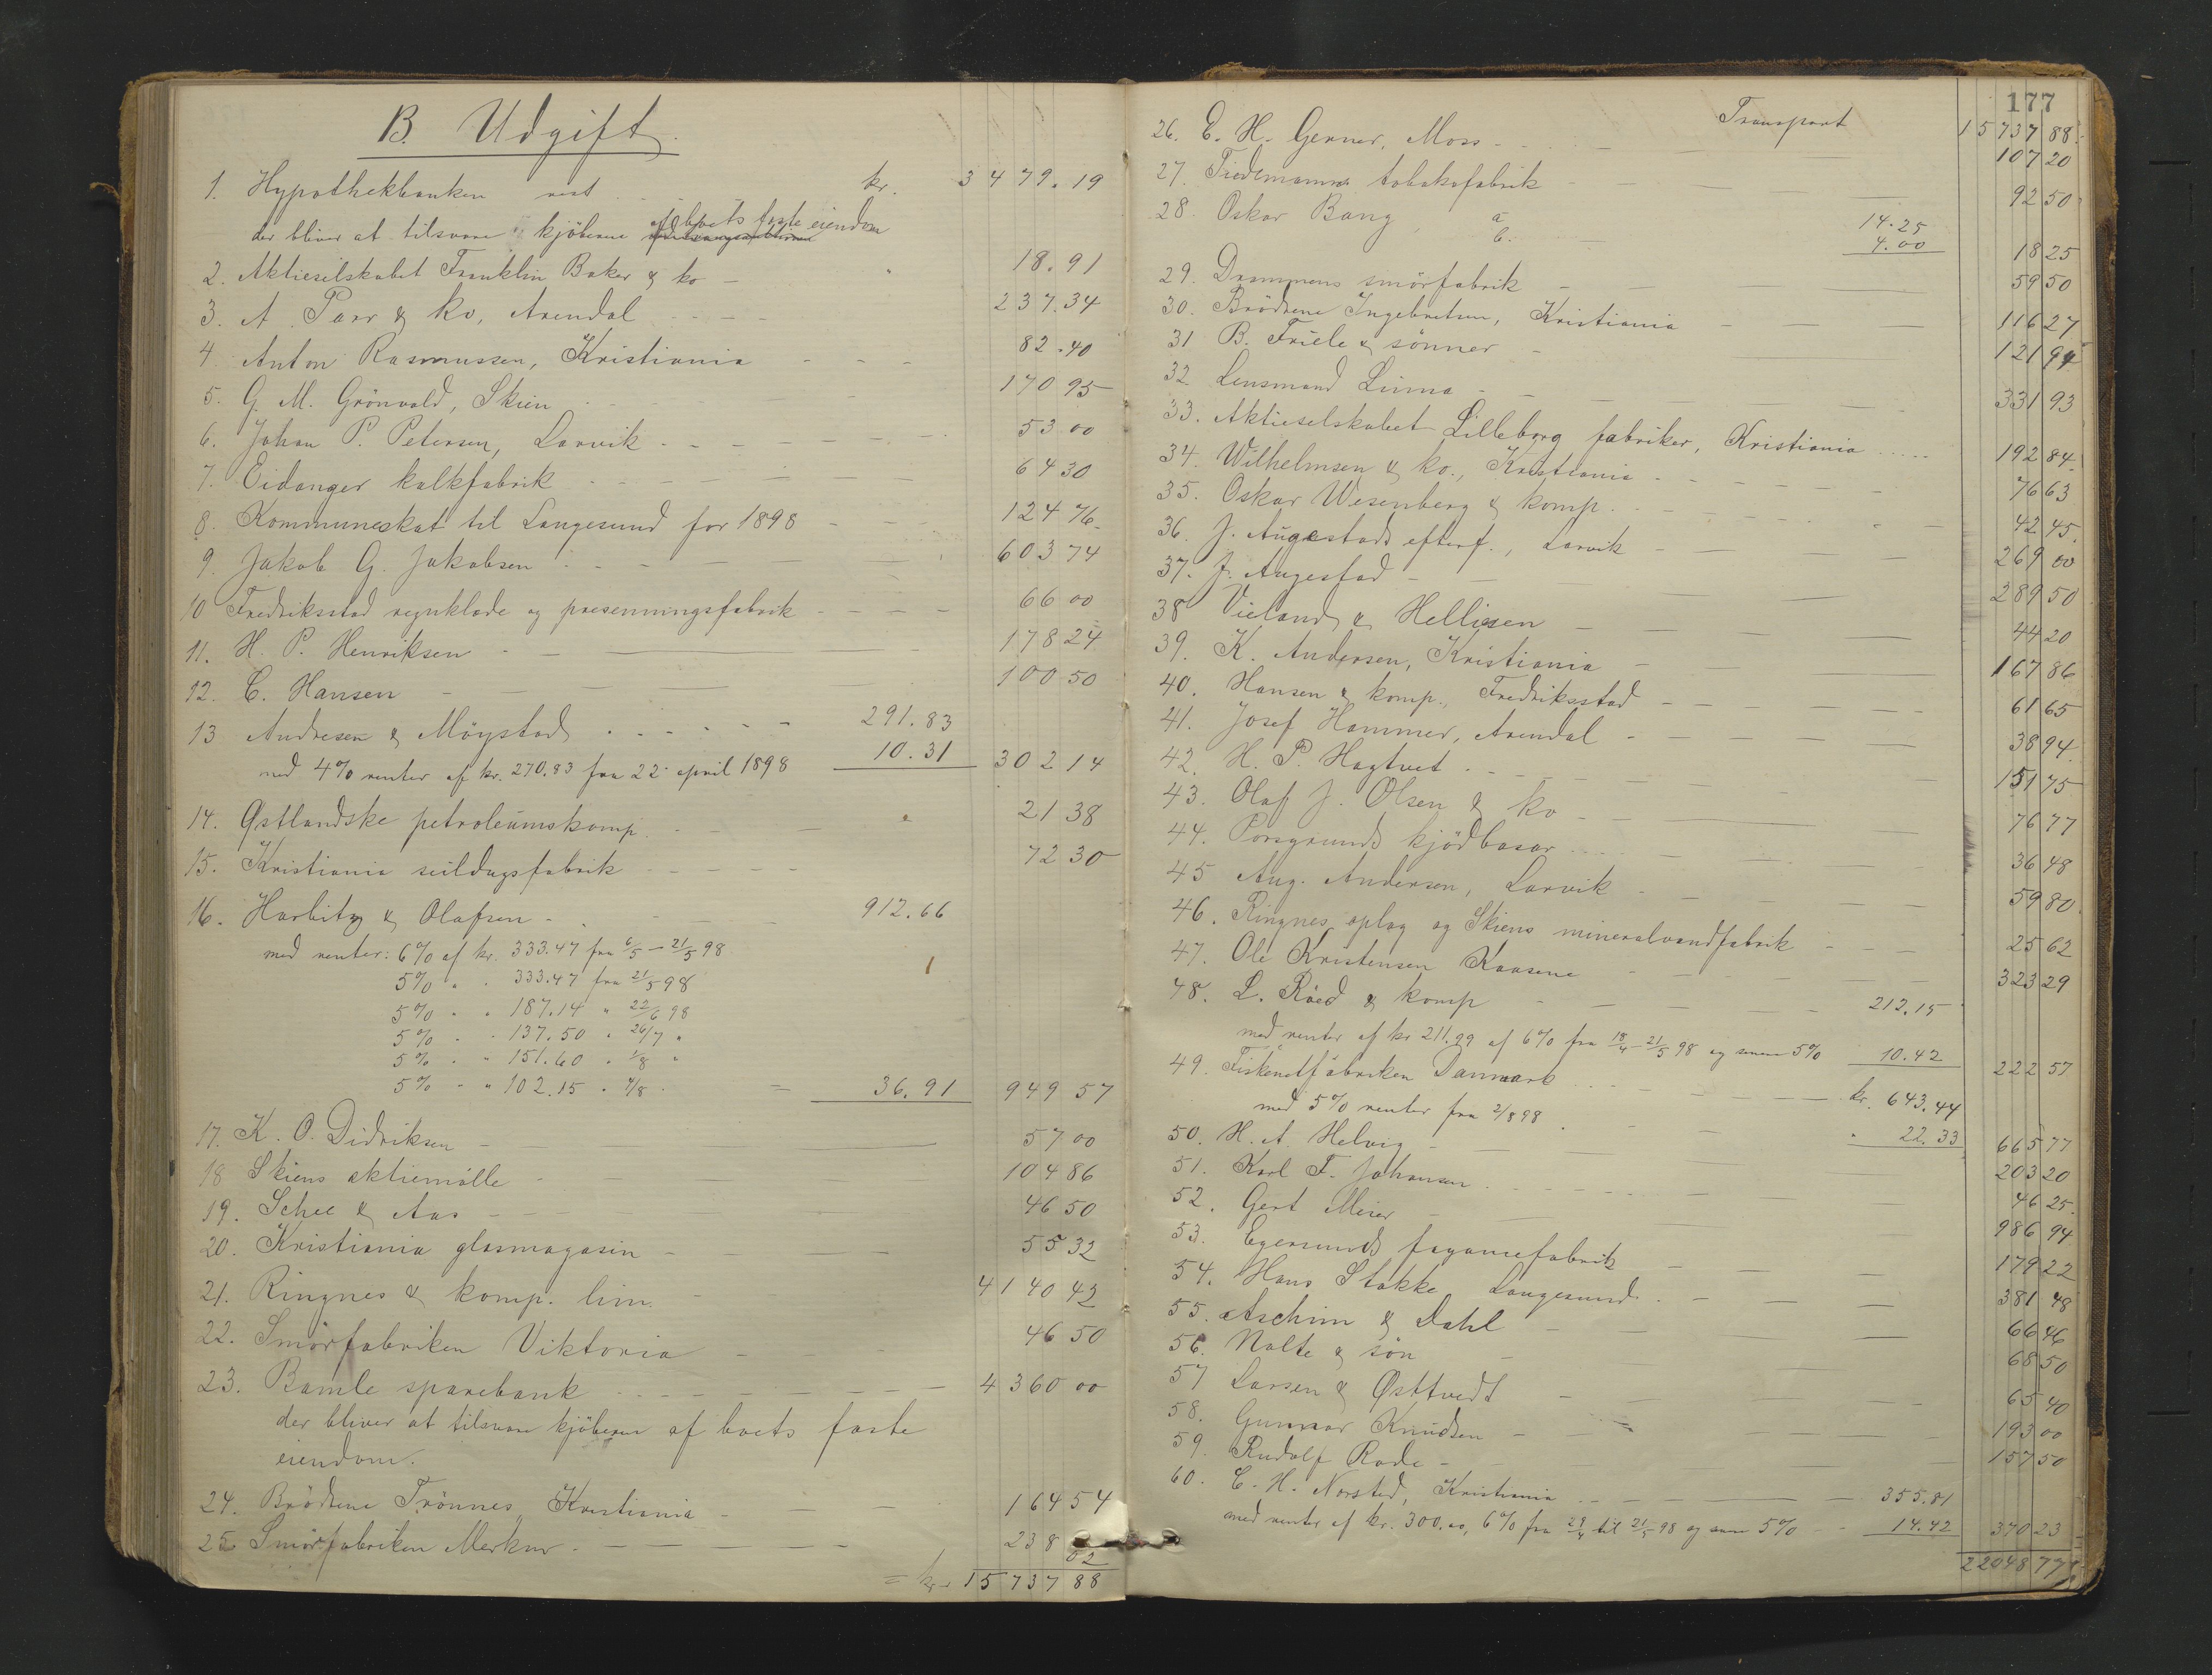 B. Udgift.
1. Hypothekbanken rest kr. 3479.19
af boets faste eiendom
der bliver at tilsvare kjöberne
2. Aktieselskabet Franklin Baker & ko " 18.91
3. A. Parr & ko, Arendal 237.34
4. Anton Rasmussen, Kristiania 82.40
5. G. M. Grönvold, Skien 170 95
6. Johan P. Petersen, Larvik 53 00
7. Eidanger kalkfabrik 64 30
8. Kommuneskat til Langesund for 1898 124 76
9. Jakob G. Jakobsen 603 74
10 Fredriksstad regnklæde og presenningsfabrik 66 00
11. H. P. Henriksen 178 24
12. C. Hansen 100 50
13 Andresen & Möystad 291.83
med 4% renter af kr. 270.83 fra 22 april 1898 10.31 302 14
14. Østlandske petroleumskomp. 21 38
15. Kristiania seildugsfabrik 72 30
16. Harbitz & Olafsen 912.66
med renter: 6% af kr. 333.47 fra 6/5 - 21/5 98
5% " " 333.47 fra 21/5 98
5% " " 187.14 " 22/6 98
5% " " 137.50 " 26/7 "
5% " " 151.60 " 1/8 "
5% " " 102.15 " 4/8 " = 36.91 949 57
17. K. O. Didriksen 57 00
18 Skiens aktiemölle 104 86
19. Schee & Aas 46 50
20. Kristiania glasmagasin 55 32
21. Ringnes & komp. lim. 4140 42
22. Smörfabriken Viktoria 46 50
23. Bamle sparebank 4360 00
der bliver at tilsvare kjöberen af boets faste
eiendom.
24. Brödrene Trönnes, Kristiania 164 54
25 Smörfabriken Merkur 238 02
= kr. 15737 88
177
Transport 15737 88
26. E. H. Gerner, Moss 107 20
27. Tiedemanns tobaksfabrik 92 50
28. Oskar Bang, a 14.25
b. 4.00 18 25
29. Drammens smörfabrik 59 50
30. Brödrene Ingebretsen, Kristiania 116 27
31 B. Friele & sönner 121 94
32 Lensmand Linna 331 93
33. Aktieselskabet Lilleborg fabriker, Kristiania 192 84
34. Wilhelmsen & ko., Kristiania 76 63
35. Oskar Wesenberg & komp. 42 45
36. J. Augestads efterf., Larvik 269 00
37. J. Augestad 289 50
38 Vieland & Hellisen 44 20
39. K. Andersen, Kristiania 167 86
40. Hansen & komp., Fredriksstad 61 65
41. Josef Hammer, Arendal 38 94
42. H. P. Hagtvet 151 75
43. Olaf J. Olsen & ko 76 77
44. Porsgrunds kjödbasar 36 48
45 Aug. Andersen, Larvik 59 80
46. Ringnes oplag og Skiens mineralvandfabrik 25 62
47. Ole Kristensen Kaasene 323 29
48. L. Röed & komp 212.15
med renter af kr 211.99 af 6% fra 18/4 - 21/5 98 og senere 5% 10.42 222 57
49. Fiskenetfabriken Danmark kr. 643.44
med 5% renter fra 2/8 98 " 22.33 665 77
50. H. A. Helvig 203 20
51. Karl F. Johansen 46 25
52. Gert Meier 986 94
53. Egersunds fayancefabrik 179 22
54. Hans Stokke Langesund 381 48
55. Aschim & Dahl 66 46
56. Nalte & sön 68 50
57 Larsen & Østtvedt 65 40
58. Gunnar Knudsen 193 00
59. Rudolf Rode 157 50
60. C. H. Norsted, Kristiania 355.81
med renter af kr. 300.00, 6% fra 29/4 til 21/5 98 og senere 5% 14.42 370 23
22048 77